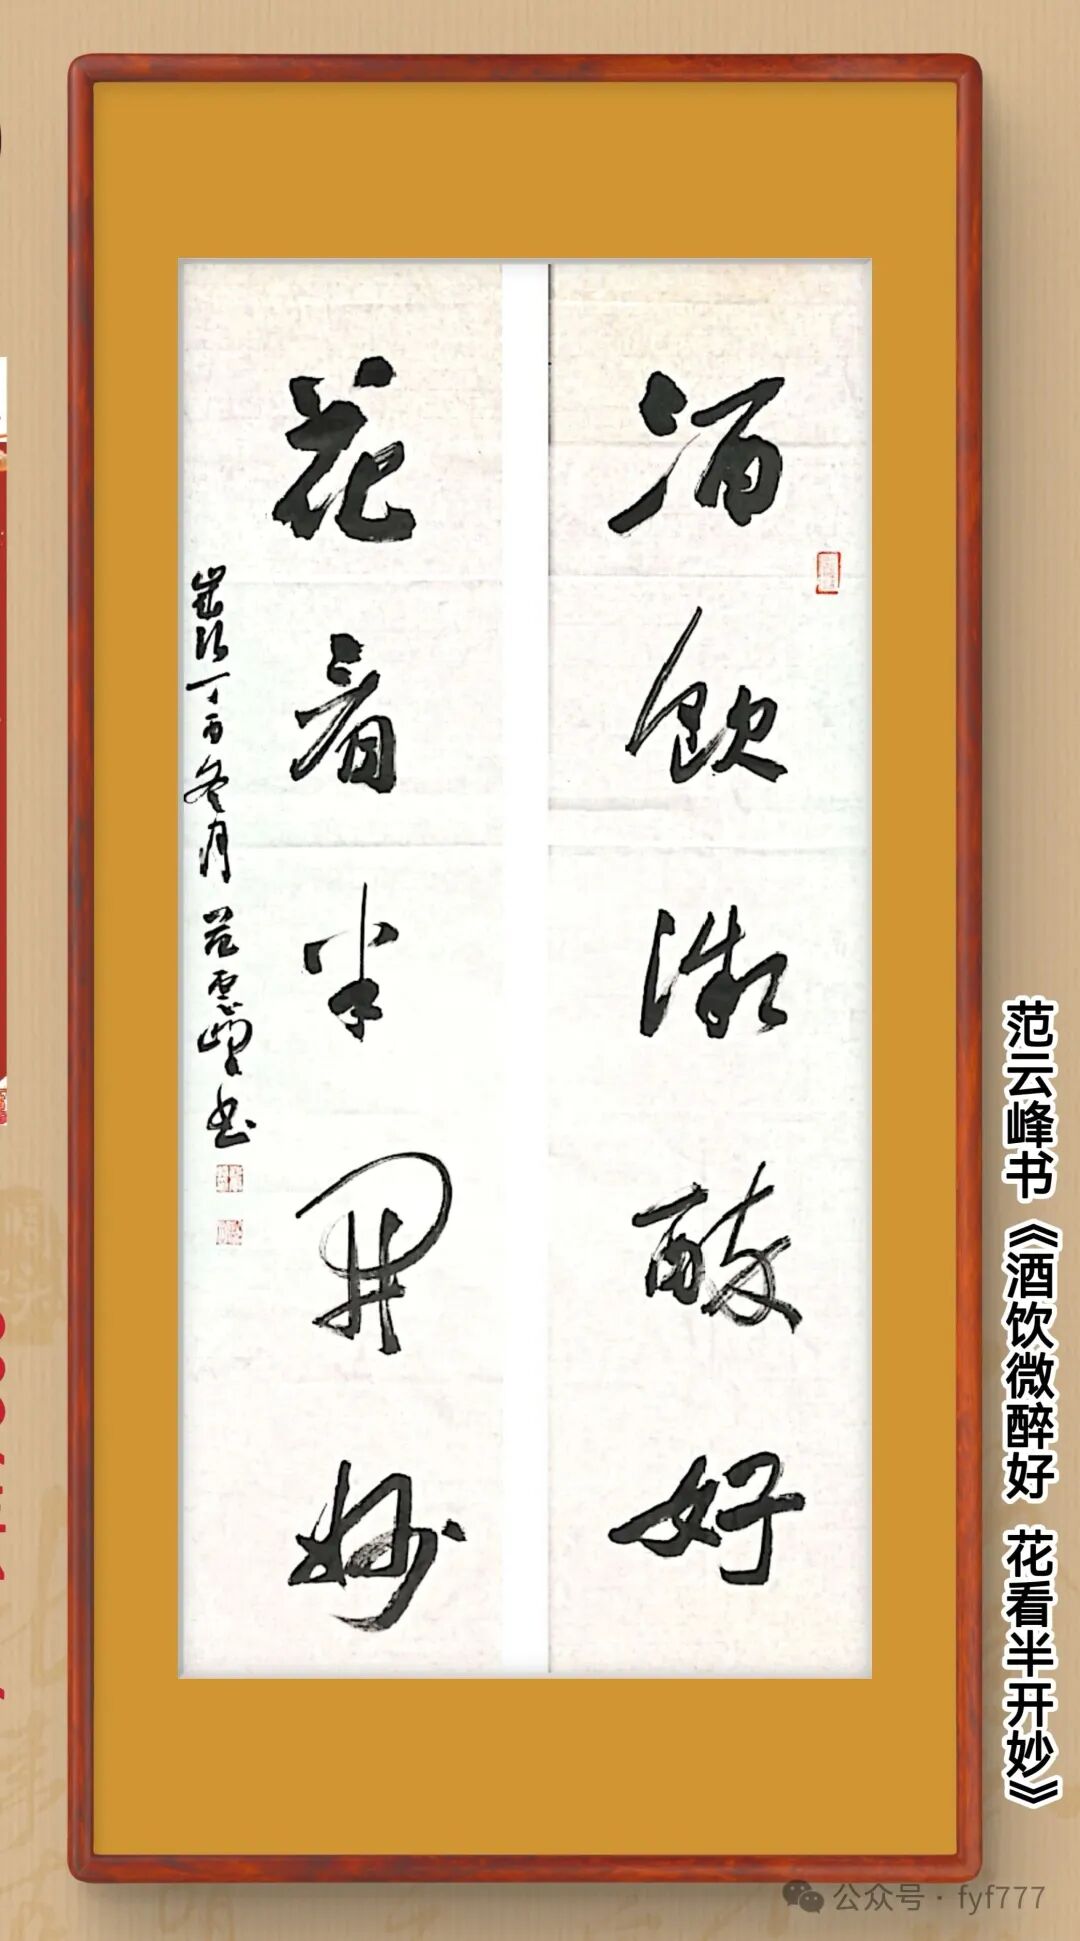 酒饮微醉好
花看半开妙
岁次丁酉冬月 范云峰书
范云峰书《酒饮微醉好 花看半开妙》
公众号·fyf777